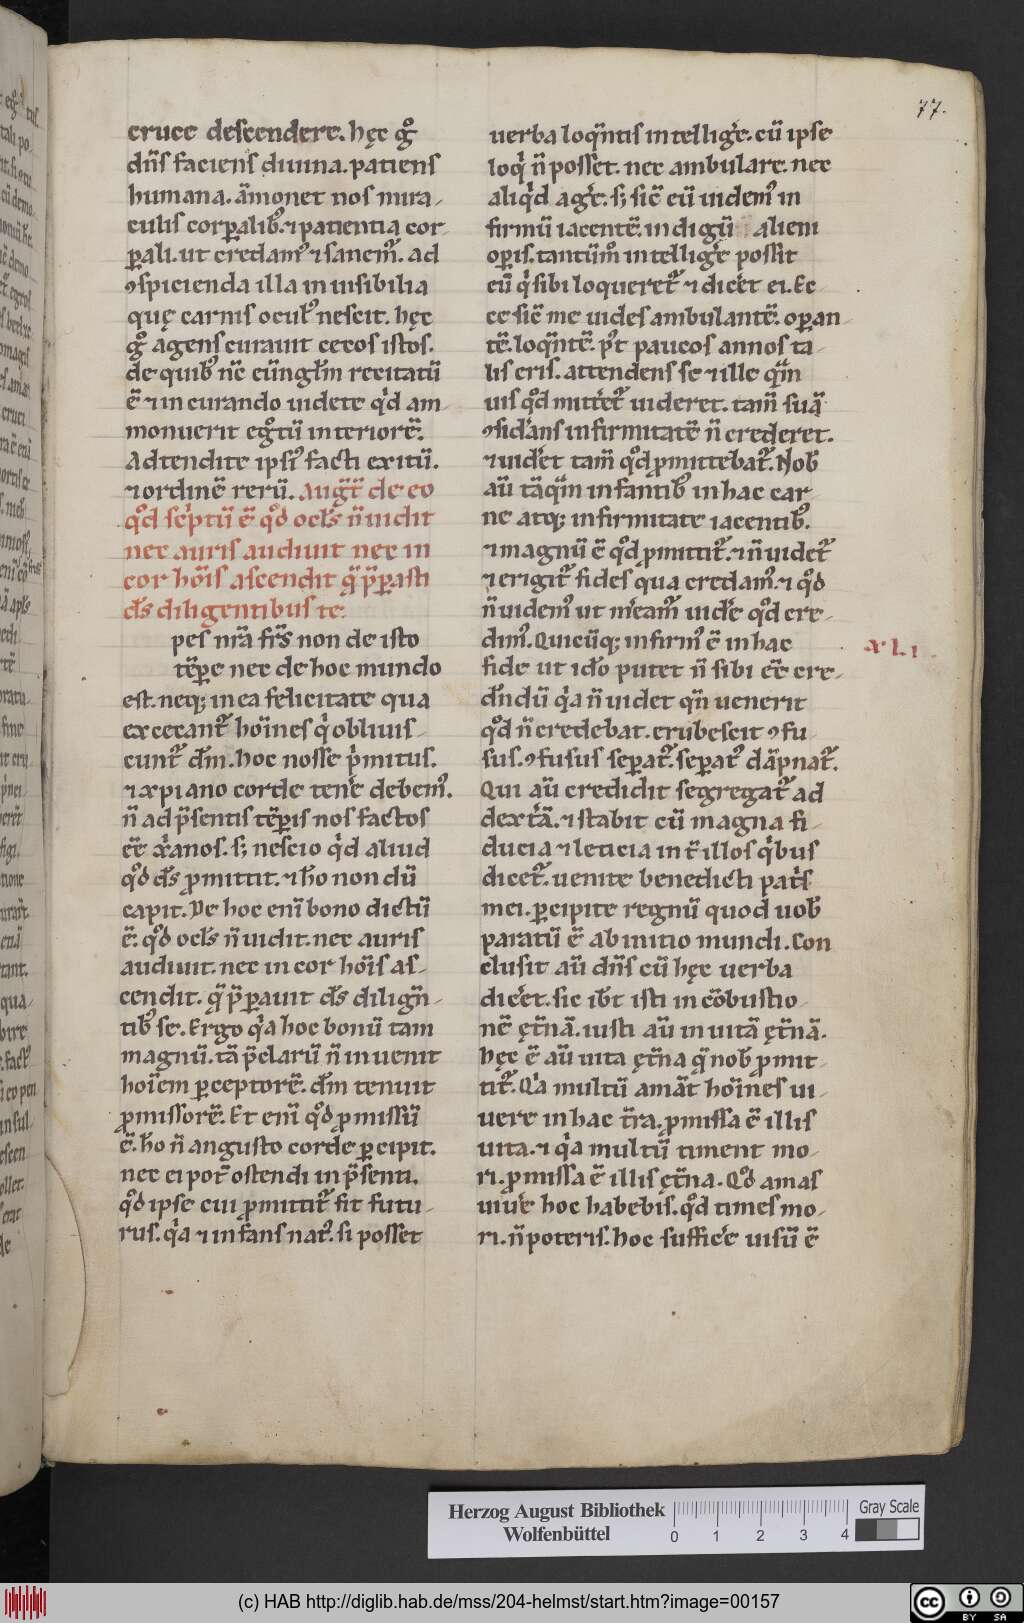 77.
cruce descendere. hęc g̊
dn̄s faciens diuina. patiens
humana. am̄onet nos mira-
culis corꝑalib᷒. ⁊ patientia cor
ꝑali. ut credam᷒ ⁊ sanem᷒. ad
ꝯspicienda illa inuisibilia
quę carnis ocul᷒ nescit. hęc
g̊ agens curauit cecos istos.
de quib᷒ nc̄ euūngl̄m recitatū
ē ⁊ in curando uidete qͥd am-
monuerit egͦtū interiorē.
Adtendite ipsi᷒ facti exitū.
⁊ ordinē rerū. Augt̄ de eo
qͦd scͥptū ē qͦd ocl̄s n̄ uidit
nec auris audiuit nec in
cor hoīs ascendit q̄ p̄parasti
ds̄ diligentibus te.
pes nr̄a frs̄ non de isto
tēꝑe nec de hoc mundo
est. neq; in ea felicitate qua
excecant᷑ hoīnes qͥ obliuis-
cunt᷑ dm̄. hoc nosse pͥmitus.
⁊ xpiano corde tenēe debem᷒.
n̄ ad p̄sentis tēꝑis nos factos
eē xr̄anos. s; nescio qͥd aliud
qͦd ds̄ ꝓmittit. ⁊ hō non dū
capit. De hoc enī bono dictū
ē. qͦd ocl̄s n̄ uidit. nec auris
audiuit. nec in cor hoīs as-
cendit. q̄ p̄parauit ds̄ dilign̄-
tib᷒ se. Ergo qͥa hoc bonū tam
magnū. tā p̄clarū n̄ inuenit
hoīem ꝑceptorē. dm̄ tenuit
ꝓmissorē. Et enī qͦd ꝓmissū
ē. hō n̄ angusto corde ꝑcipit.
nec ei pot̄ ostendi in p̄senti.
qͦd ipse cui ꝓmittit᷑ fit futu-
rus. qͥa ⁊ infans nat᷒. si posset
uerba loqn̄tis intelligēe. cū ipse
loqͥ n̄ posset. nec ambulare. nec
aliqͥd agēe. s; sic̄ eū uidem᷒ in
firmū iacentē. indigū alieni
oꝑis. tantūm̊ intelligēe possit
eū qͥ sibi loqueret᷑ ⁊ dicēet ei. Ec
ce sic̄ me uides ambulantē. oꝑan-
tē. loqn̄tē. p᷒t paucos annos ta-
lis eris. attendens se ⁊ ille qm̄
uis qͦd mittēet᷑ uideret. tam̄ suā
ꝯsidāns infirmitatē n̄ crederet.
⁊ uidēet tam̄ qͦd ꝓmittebat᷑. Nob̄
aū tāqm̄ infantib᷒ in hac car-
ne atq; infirmitate iacentib᷒.
⁊ magnū ē qͦd ꝓmittit᷑. ⁊ n̄ uidet᷑
⁊ erigit᷑ fides qua credam᷒. ⁊ qͦd
n̄ uidem᷒ ut mēeam᷒ uidēe qͦd cre-
dim᷒. Quicūq; infirm᷒ ē in hac
fide ut idō putet n̄ sibi eē cre-
dn̄dū qͥa n̄ uidet qn̄ uenerit
qͦd n̄ credebat. erubescit ꝯfu-
sus. ꝯfusus seꝑat᷑. seꝑat᷒ dāpnat᷑.
Qui aū credidit segregat᷑ ad
dext̄ā. ⁊ stabit cū magna fi-
ducia ⁊ leticia int̄ illos qͥbus
dicet᷑. uenite benedicti patͥs
mei. ꝑcipite regnū quod uob̄
paratū ē ab initio mundi. Con
clusit aū dn̄s cū hęc uerba
dicēet. sic ibt̄ isti in cōbustio-
nē ęt̄nā. iusti aū in uitā ęt̄nā.
Hęc ē aū uita ęt̄na q̄ nob̄ ꝓmit-
tit᷑. Qͥa multū amāt hoīnes ui-
uere in hac t̄ra. ꝓmissa ē illis
uita. ⁊ qͥa multū timent mo-
ri. ꝓmissa ē illis ęt̄na. Qͦd amas
uiuēe hoc habebis. qͦd times mo-
ri. n̄ poteris. hoc sufficēe uisū ē
XLI
Herzog August Bibliothek
Wolfenbüttel
0 1 2 3 4
Gray Scale
(c) HAB http://diglib.hab.de/mss/204-helmst/start.htm?image=00157
cc BY SA